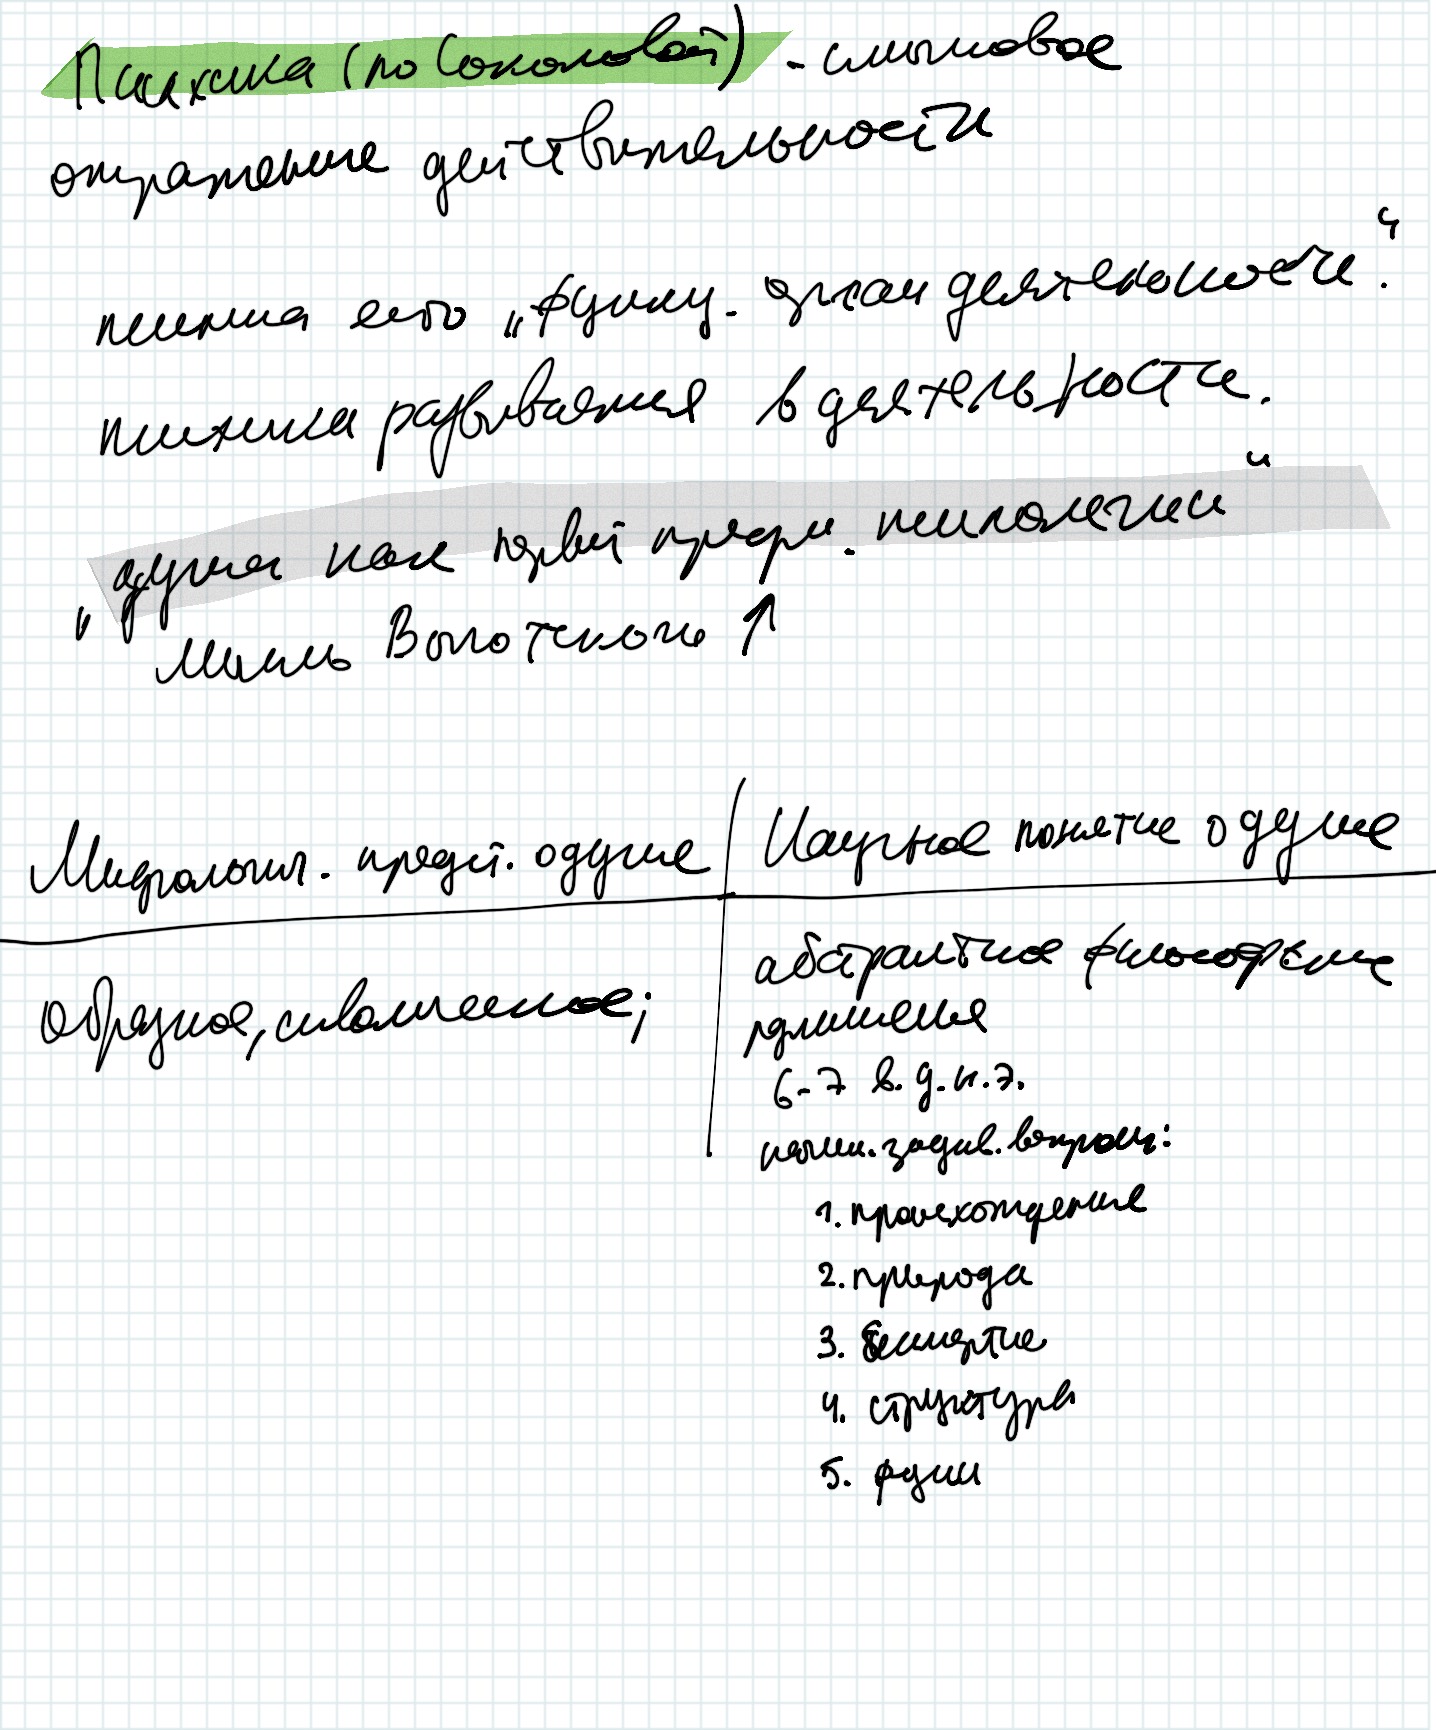 Психика (по Соколовой) - смысловое
отражение действительности
психика есть „функц. орган деятельности“.
психика развивается в деятельности.
„душа как первый предм. психологии“
Мысль Выготского ↑
Мифологич. предст. о душе
Научное понятие о душе
образное, символическое;
абстрактное философские
размышления
6-7 в. д.н.э.
задав. вопросы:
1. происхождение
2. природа
3. бессмертие
4. структура
5. функц